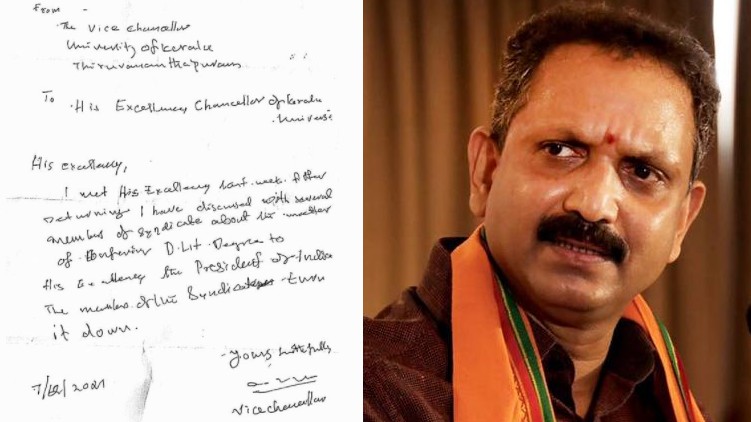 From -
The Vice Chancellor
University of Kerala
Thiruvananthapuram
To
His Excellency Chancellor of Kerala
Universi
His excellency,
I met His Excellency last week. After
returning I have discussed with several
member of syndicate about the matter
of Conferring D.Lit Degree to
His Excellency the President of India
The members of the Syndicate turn
it down.
yours faithfully
7/12/2021
Vice chancellor